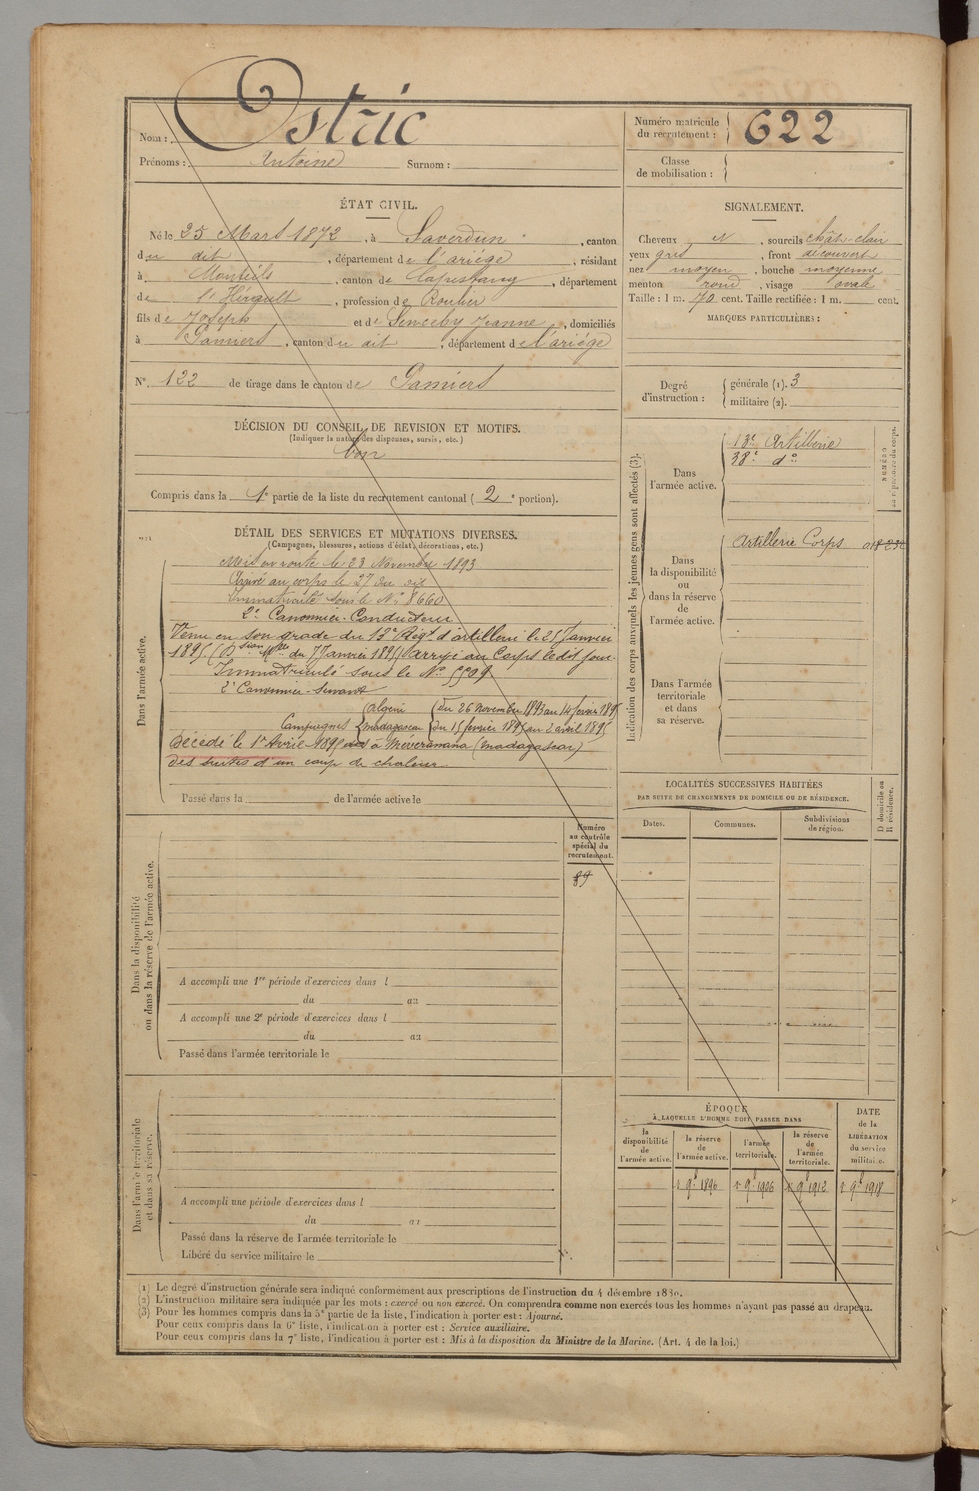 Nom : Ostric
Prénoms : Antoine Surnom :
Numéro matricule du recrutement : 622
Classe de mobilisation :
ÉTAT CIVIL.
Né le 25 Mars 1872, à Saverdun, canton
du dit, département de l'ariége, résidant
à Montels, canton de Capestang, département
de l'Hérault, profession de Roulier
fils de Joseph et de Jeanne, domiciliés
à Pamiers, canton du dit, département de l'ariége
N° 122 de tirage dans le canton de Pamiers
DÉCISION DU CONSEIL DE REVISION ET MOTIFS.
(Indiquer la nature des dispenses, sursis, etc.)
bon
Compris dans la 1e partie de la liste du recrutement cantonal (2e portion).
SIGNALEMENT.
Cheveux N, sourcils chât-clair
yeux gris, front découvert
nez moyen, bouche moyenne
menton rond, visage ovale
Taille : 1 m. 70 cent. Taille rectifiée : 1 m. cent.
MARQUES PARTICULIÈRES :
Degré d'instruction : générale (1). 3
militaire (2).
Indication des corps auxquels les jeunes gens sont affectés (3).
NUMÉRO
Dans l'armée active.
13e Artillerie
38e do
Dans la disponibilité ou dans la réserve de l'armée active.
Artillerie Corps
Dans l'armée territoriale et dans sa réserve.
DÉTAIL DES SERVICES ET MUTATIONS DIVERSES.
(Campagnes, blessures, actions d'éclat, décorations, etc.)
Dans l'armée active.
Mis en route le 23 Novembre 1893
Arrivé au corps le 27 du dit
Immatriculé sous le N° 8660
2e Canonnier-Conducteur
Venu en son grade du 13e Régt d'artillerie le 25 Janvier
1895 (Don Mlle du 7 Janvier 1895) Arrivé au Corps ledit jour
Immatriculé sous le N° 5509
2e Canonnier-Servant
Campagnes
Algérie du 26 Novembre 1893 au 14 février 1895
Madagascar du 15 février 1895 au 2 avril 1895
Décédé le 1er Avril 1895 à Méveranana (Madagascar)
des suites d'un coup de chaleur
Passé dans la de l'armée active le
LOCALITÉS SUCCESSIVES HABITÉES
PAR SUITE DE CHANGEMENTS DE DOMICILE OU DE RÉSIDENCE.
Dates. Communes. Subdivisions de région.
D domicile ou R résidence.
Numéro au contrôle spécial du recrutement.
89
Dans la disponibilité ou dans la réserve de l'armée active.
A accompli une 1re période d'exercices dans l
du au
A accompli une 2e période d'exercices dans l
du au
Passé dans l'armée territoriale le
Dans l'armée territoriale et dans sa réserve.
A accompli une période d'exercices dans l
du au
Passé dans la réserve de l'armée territoriale le
Libéré du service militaire le
ÉPOQUE
À LAQUELLE L'HOMME DOIT PASSER DANS
la disponibilité de l'armée active.
la réserve de l'armée active.
l'armée territoriale.
la réserve de l'armée territoriale.
DATE de la LIBÉRATION du service militaire.
1 9e 1896
1 9e 1906
1 9e 1912
1 9e 1918
(1) Le degré d'instruction générale sera indiqué conformément aux prescriptions de l'instruction du 4 décembre 1830.
(2) L'instruction militaire sera indiquée par les mots : exercé ou non exercé. On comprendra comme non exercés tous les hommes n'ayant pas passé au drapeau.
(3) Pour les hommes compris dans la 5e partie de la liste, l'indication à porter est : Ajourné.
Pour ceux compris dans la 6e liste, l'indication à porter est : Service auxiliaire.
Pour ceux compris dans la 7e liste, l'indication à porter est : Mis à la disposition du Ministre de la Marine. (Art. 4 de la loi.)